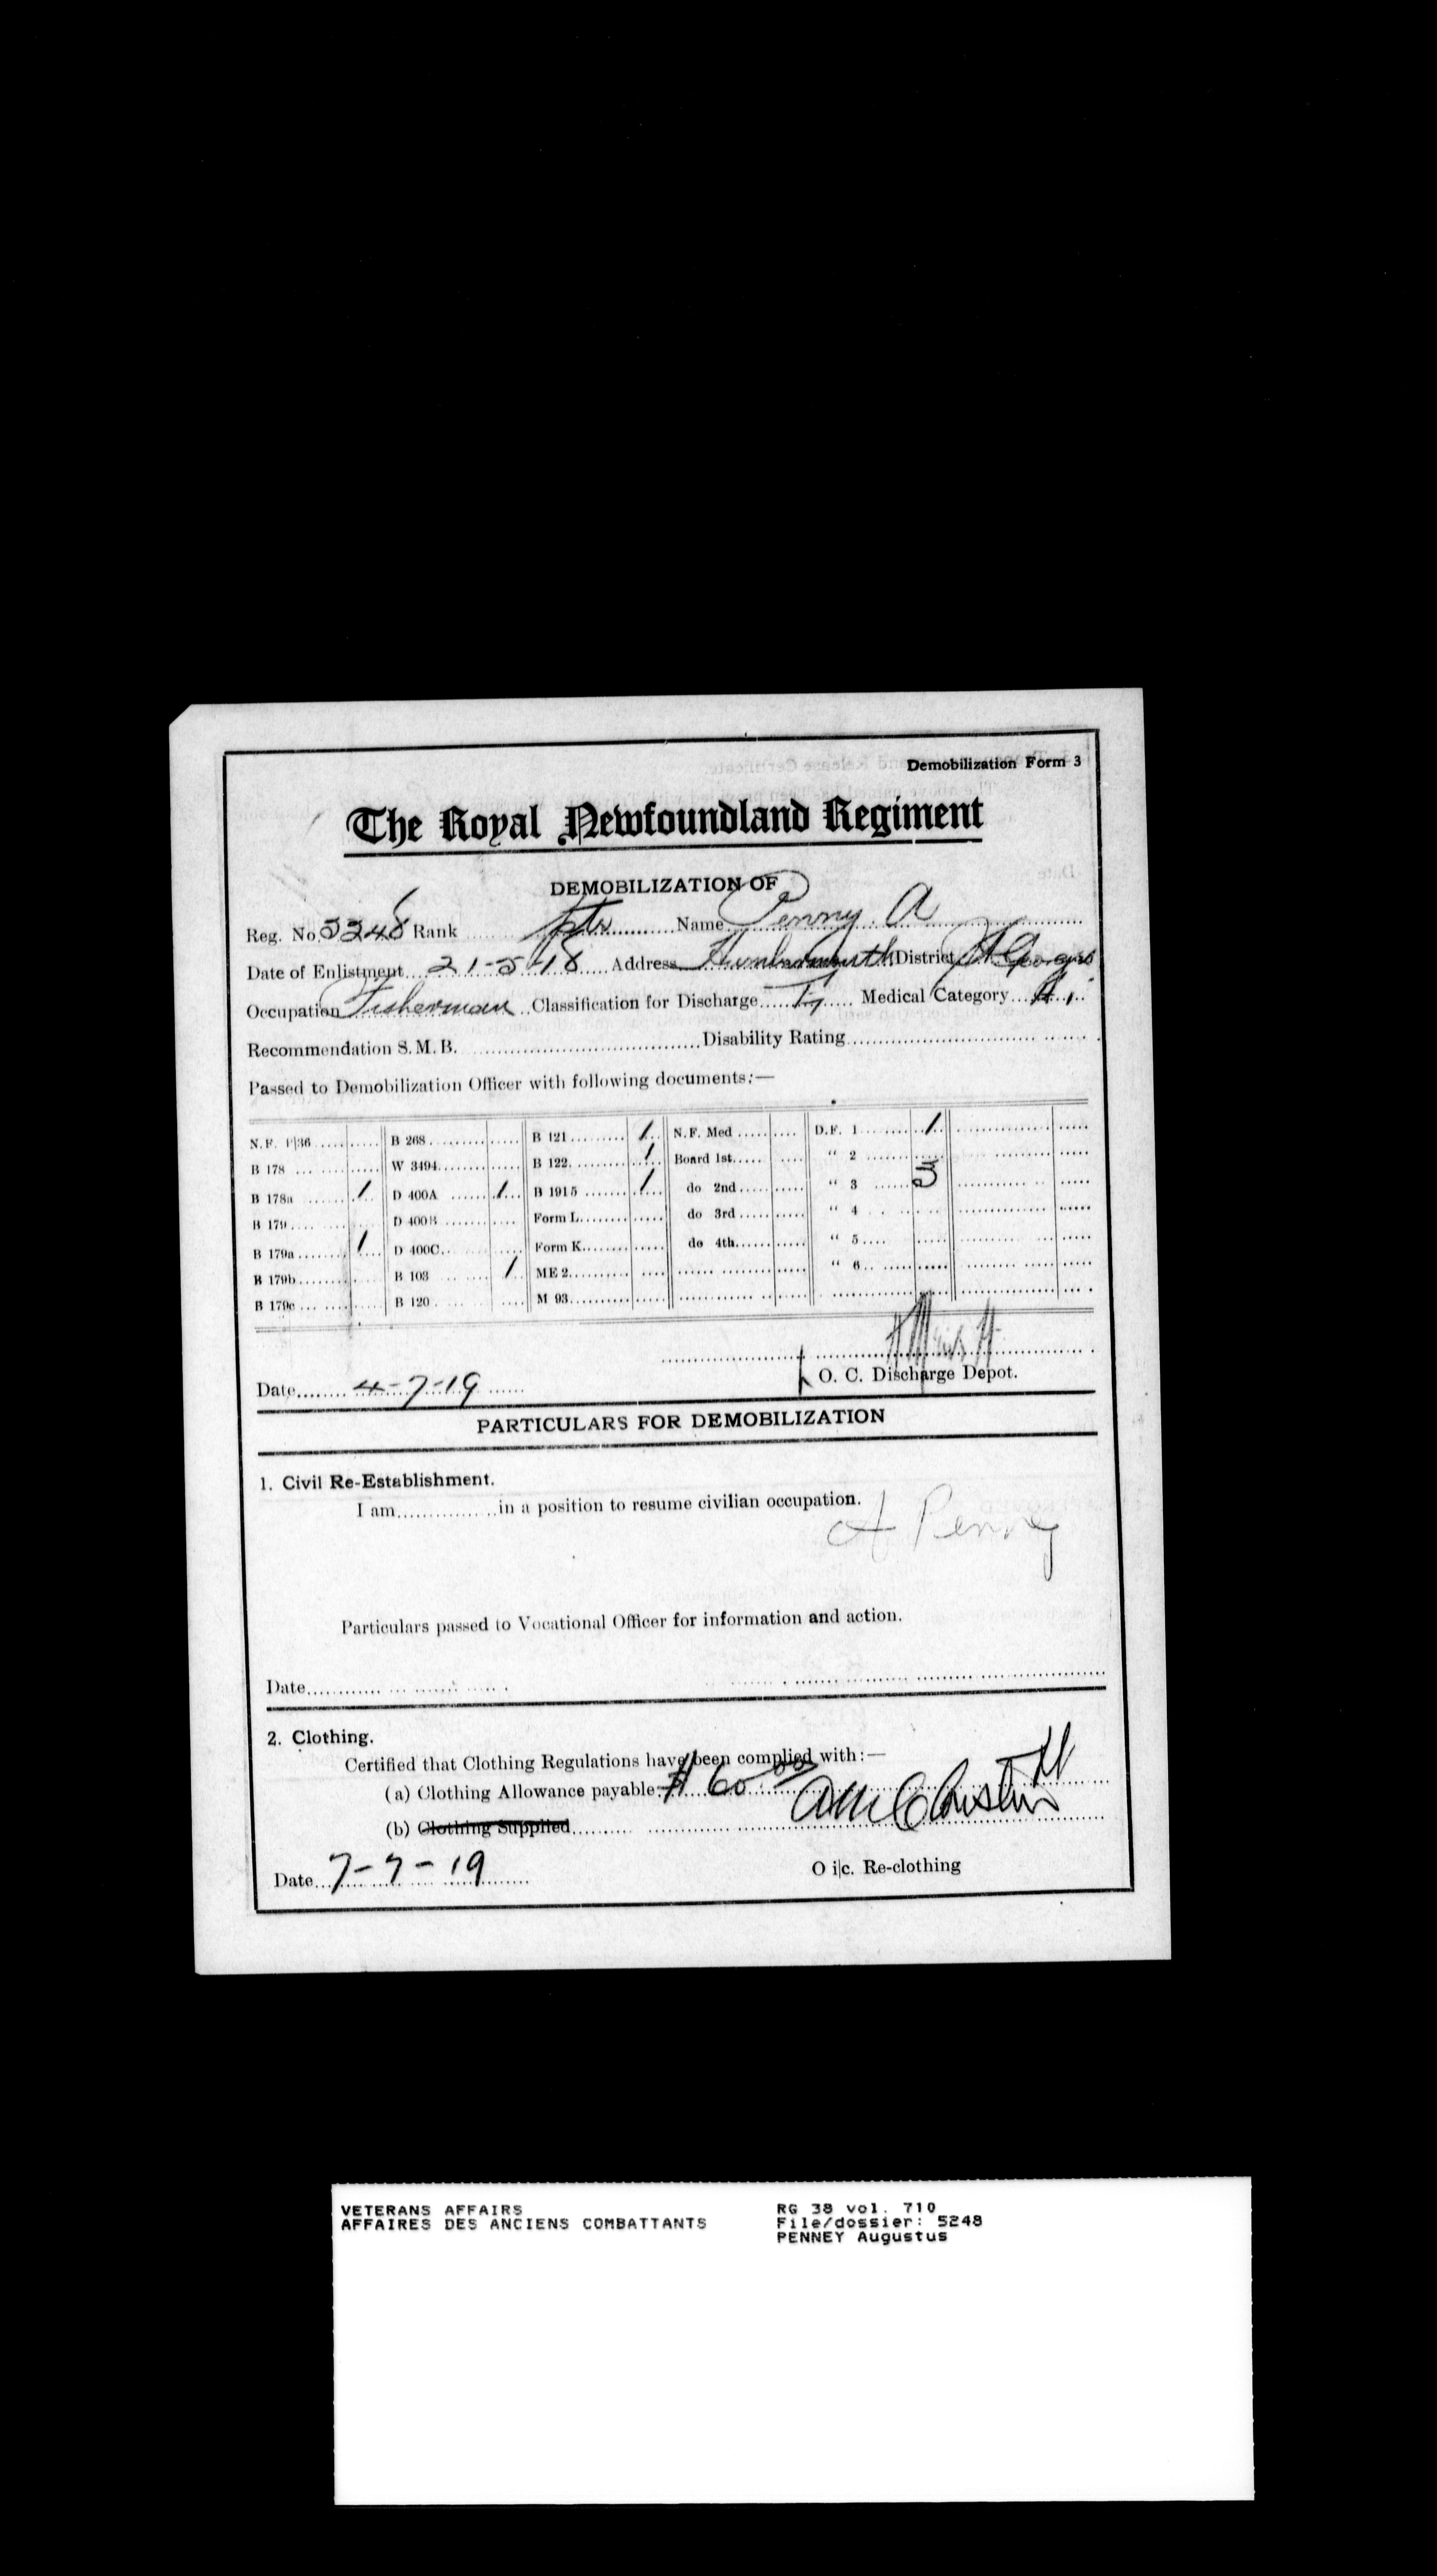 Demobilization Form 3
The Royal Newfoundland Regiment
DEMOBILIZATION OF
Reg. No. 5248 Rank Pte Name Penny. A
Date of Enlistment 21-5-18 Address Humbermouth District St Georges
Occupation Fisherman Classification for Discharge Medical Category A 1
Recommendation S. M. B. Disability Rating
Passed to Demobilization Officer with following documents:—
N.F. P|36 B 268 B 121 1 N.F. Med D.F. 1 1
B 178 W 3494 B 122 1 Board 1st " 2
B 178a 1 D 400A 1 B 1915 1 do 2nd " 3
B 179 D 400B Form L do 3rd " 4
B 179a 1 D 400C Form K do 4th " 5
B 179b B 103 1 ME 2 " 6
B 179c B 120 M 93
Date 4-7-19 O. C. Discharge Depot.
PARTICULARS FOR DEMOBILIZATION
1. Civil Re-Establishment.
I am in a position to resume civilian occupation.
A Penney
Particulars passed to Vocational Officer for information and action.
Date
2. Clothing.
Certified that Clothing Regulations have been complied with:—
(a) Clothing Allowance payable $ 60.00
(b) Clothing Supplied
Date 7-7-19 O i|c. Re-clothing
VETERANS AFFAIRS RG 38 vol. 710
AFFAIRES DES ANCIENS COMBATTANTS File/dossier: 5248
PENNEY Augustus